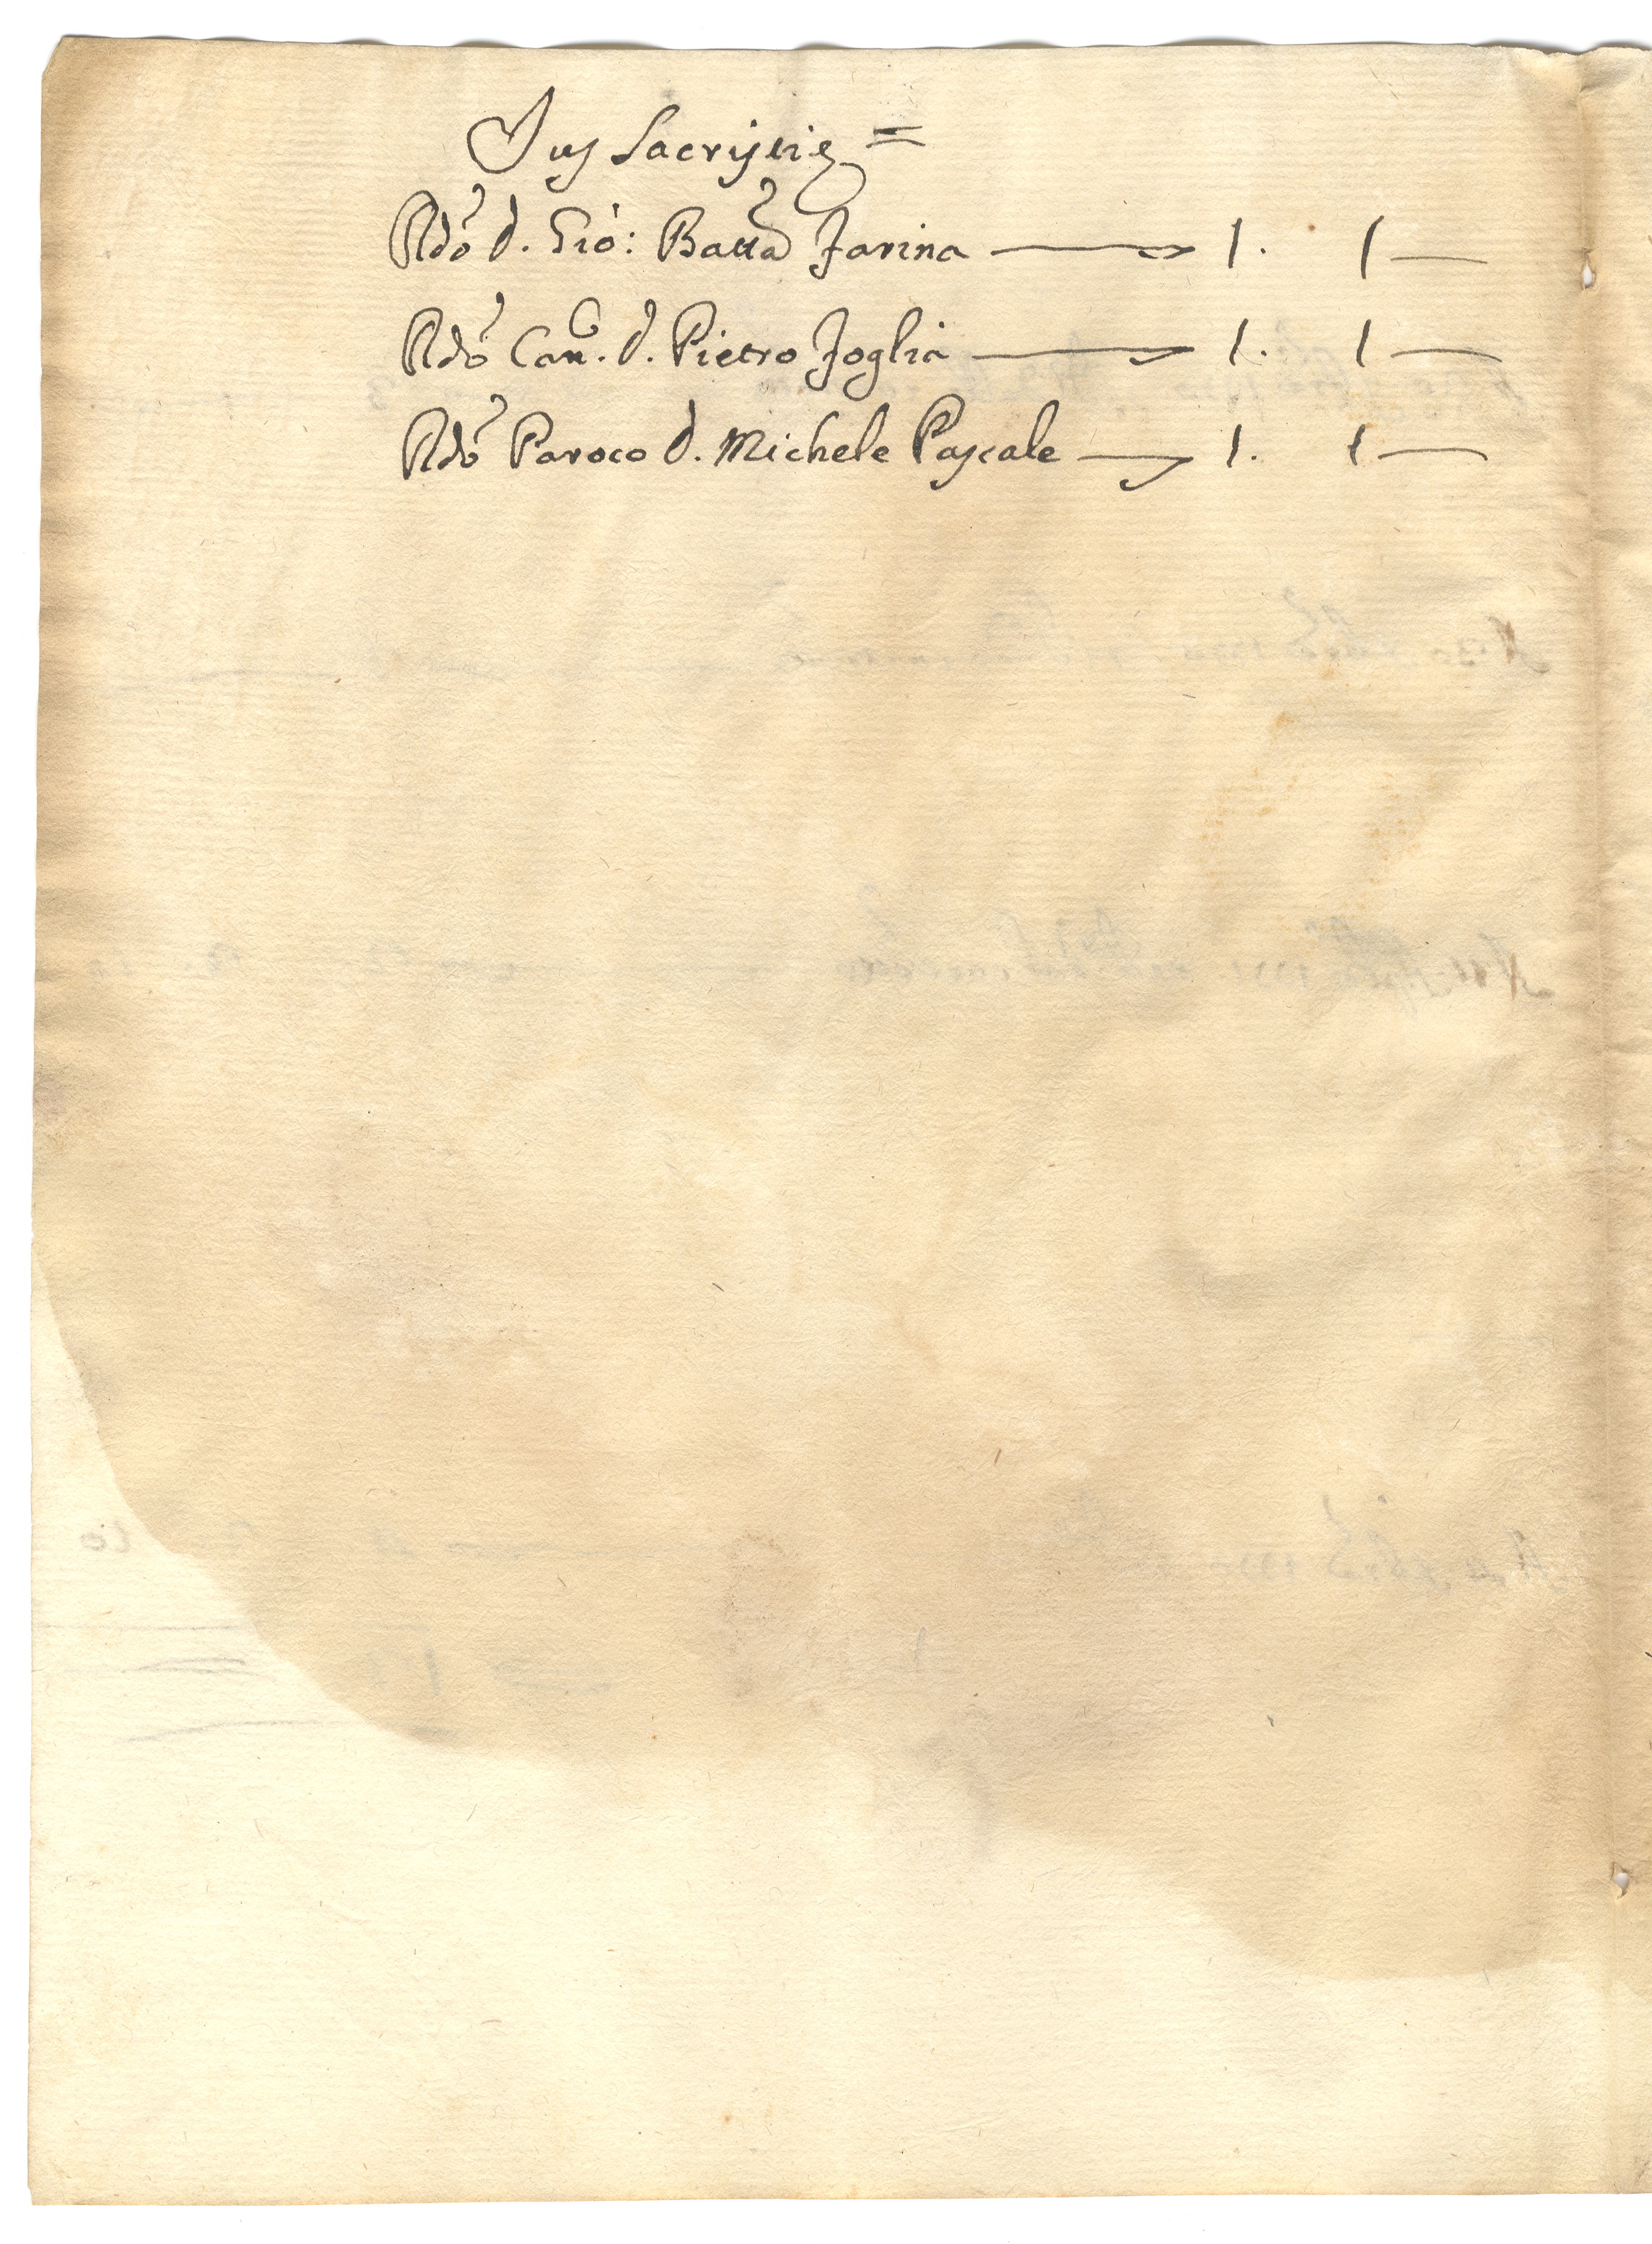 Jus Sacristie =
Rdo d. Gio: Batta Farina — 1. 1 —
Rdo Can. d. Pietro Foglia — 1. 1 —
Rdo Paroco d. Michele Pascale — 1. 1 —